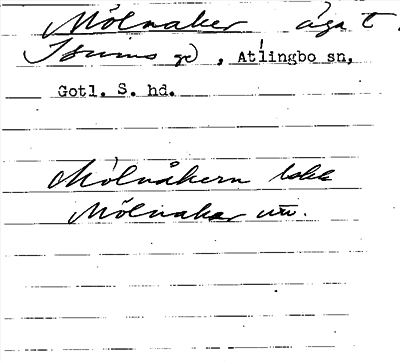 Mölnaker äga t.
Isums gd, Atlingbo sn,
Gotl. S. hd.
Mölnåkern
Mölnakar